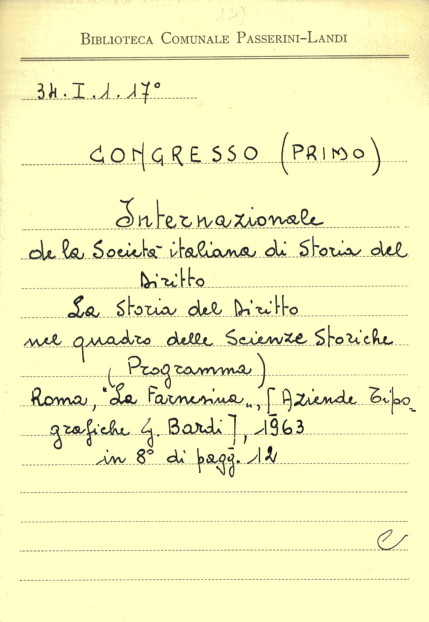 BIBLIOTECA COMUNALE PASSERINI-LANDI
34.I.1.17°
CONGRESSO (PRIMO)
Internazionale
de la Società italiana di Storia del
Diritto
La Storia del Diritto
nel quadro delle Scienze Storiche
(Programma)
Roma, "La Farnesina", [Aziende Tipo-
grafiche G. Bardi], 1963
in 8° di pagg. 12